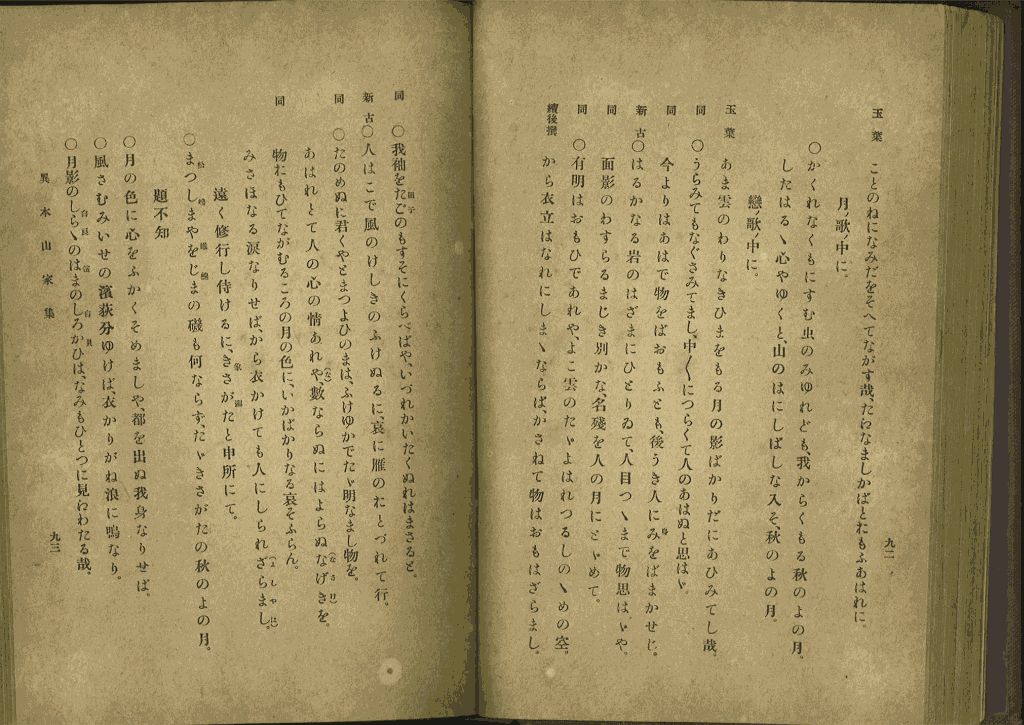 玉葉 ことのねになみだをそへてながす哉、たらなましかばとおもふあはれに。
月ノ歌ノ中に。
〇かくれなくもにすむ虫のみゆれども、我からくもる秋のよの月。
したはるゝ心やゆくと、山のはにしばしな入そ、秋のよの月。
戀ノ歌ノ中に。
玉葉 あま雲のわりなきひまをもる月の影ばかりだにあひみてし哉。
同 〇うらみてもなぐさみてまし、中〳〵につらくて人のあはぬと思はゞ。
同 今よりはあはで物をばおもふとも、後うき人にみをばまかせじ。
新古 〇はるかなる岩のはざまにひとりゐて、人目つゝまで物思はゞや。
同 面影のわすらるまじき別かな、名殘を人の月にとゞめて。
同 〇有明はおもひであれや、よこ雲のたゞよはれつるしのゝめの空。
續後撰 から衣立はなれにしまゝならば、かさねて物はおもはざらまし。
九二
同 〇我袖をたごのもすそにくらべばや、いづれかいたくぬれはまさると。
新古 〇人はこで風のけしきのふけぬるに、哀に雁のおとづれて行。
同 〇たのめぬに君くやとまつよひのまは、ふけゆかでたゞ明なまし物を。
あはれとて人の心の情あれや、(な)數ならぬにはよらぬなげき(なさけ)を。
同 物おもひてながむるころの月の色に、いかばかりなる哀そふらん。
みさほなる涙なりせば、から衣かけても人にしられざらまし。
遠く修行し侍けるに、きさがたと申所にて。
〇まつしまやをじまの磯も何ならず、たゞきさがたの秋のよの月。
題不知
〇月の色に心をふかくそめましや、都を出ぬ我身なりせば。
〇風さむみいせの濱荻分ゆけば、衣かりがね浪に鳴なり。
〇月影のしらゝのはまのしろかひは、なみもひとつに見らわたる哉。
異本山家集
九三